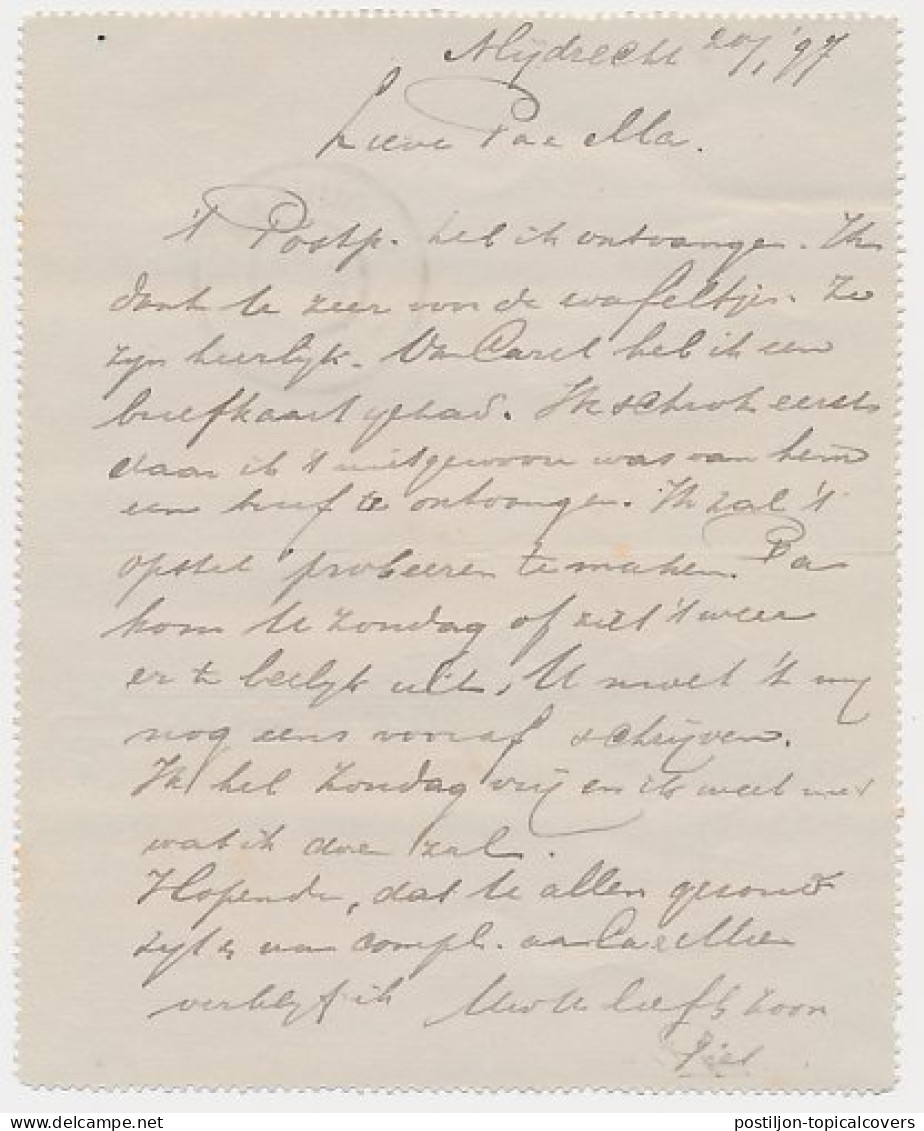 Mijdrecht 20/1 '97
Lieve Pa & Ma.
't Postp. heb ik ontvangen. Ik
dank U zeer voor de wafeltjes. Ze
zijn heerlijk. Van Carel heb ik een
briefkaart gehad. Ik schrok eerst
daar ik 't niet gewoon was van hem
een brief te ontvangen. Ik zal 't
opstel probeeren te maken. Pa
kom U Zondag of ziet 't weer
er te leelijk uit. U moet 't mij
nog eens vooraf schrijven.
Ik heb Zondag vrij en ik weet niet
wat ik doen zal.
Hopende, dat U allen gezond
zijt & van compl. aan Car &
verblijf ik Uw U liefh. zoon
Piet
postiljon-topicalcovers